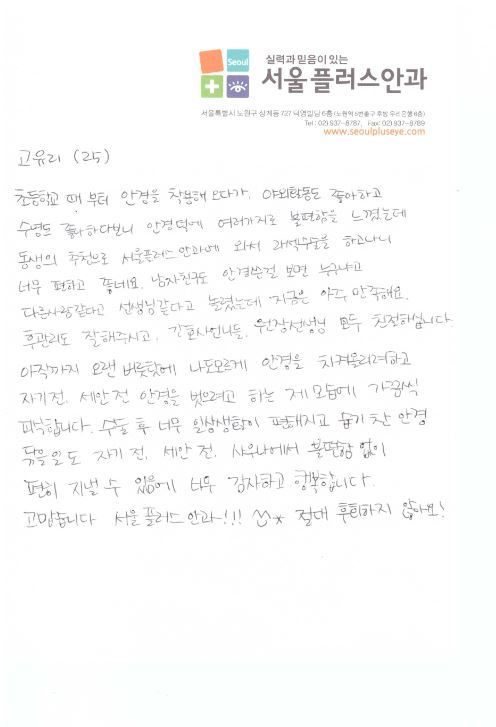 Seoul
실력과 믿음이 있는
서울플러스안과
서울특별시 노원구 상계동 727 덕영빌딩 6층 (노원역 5번출구 후방 우리은행 6층)
Tel : 02) 937-8787, Fax: 02) 937-8789
www.seoulpluseye.com
고유리 (25)
초등학교 때 부터 안경을 착용해 오다가, 야외활동도 좋아하고
수영도 좋아하다보니 안경덕에 여러가지로 불편함을 느꼈는데
동생의 추천으로 서울플러스 안과에 와서 라섹수술을 하고나니
너무 편하고 좋네요. 남자친구도 안경쓴걸 보면 누구냐고
다른사람같다고 선생님같다고 놀렸는데 지금은 아주 만족해요.
후관리도 잘해주시고, 간호사언니들, 원장선생님 모두 친절하십니다.
아직까지 오랜 버릇탓에 나도모르게 안경을 치켜올리려하고
자기전, 세안 전 안경을 벗으려고 하는 제 모습에 가끔씩
피식합니다. 수술 후 너무 일상생활이 편해지고 습기 찬 안경
닦을일도 자기 전, 세안 전, 사우나에서 불편함 없이
편히 지낼 수 있음에 너무 감사하고 행복합니다.
고맙습니다 서울플러스 안과!!! ^^* 절대 후회하지 않아요!